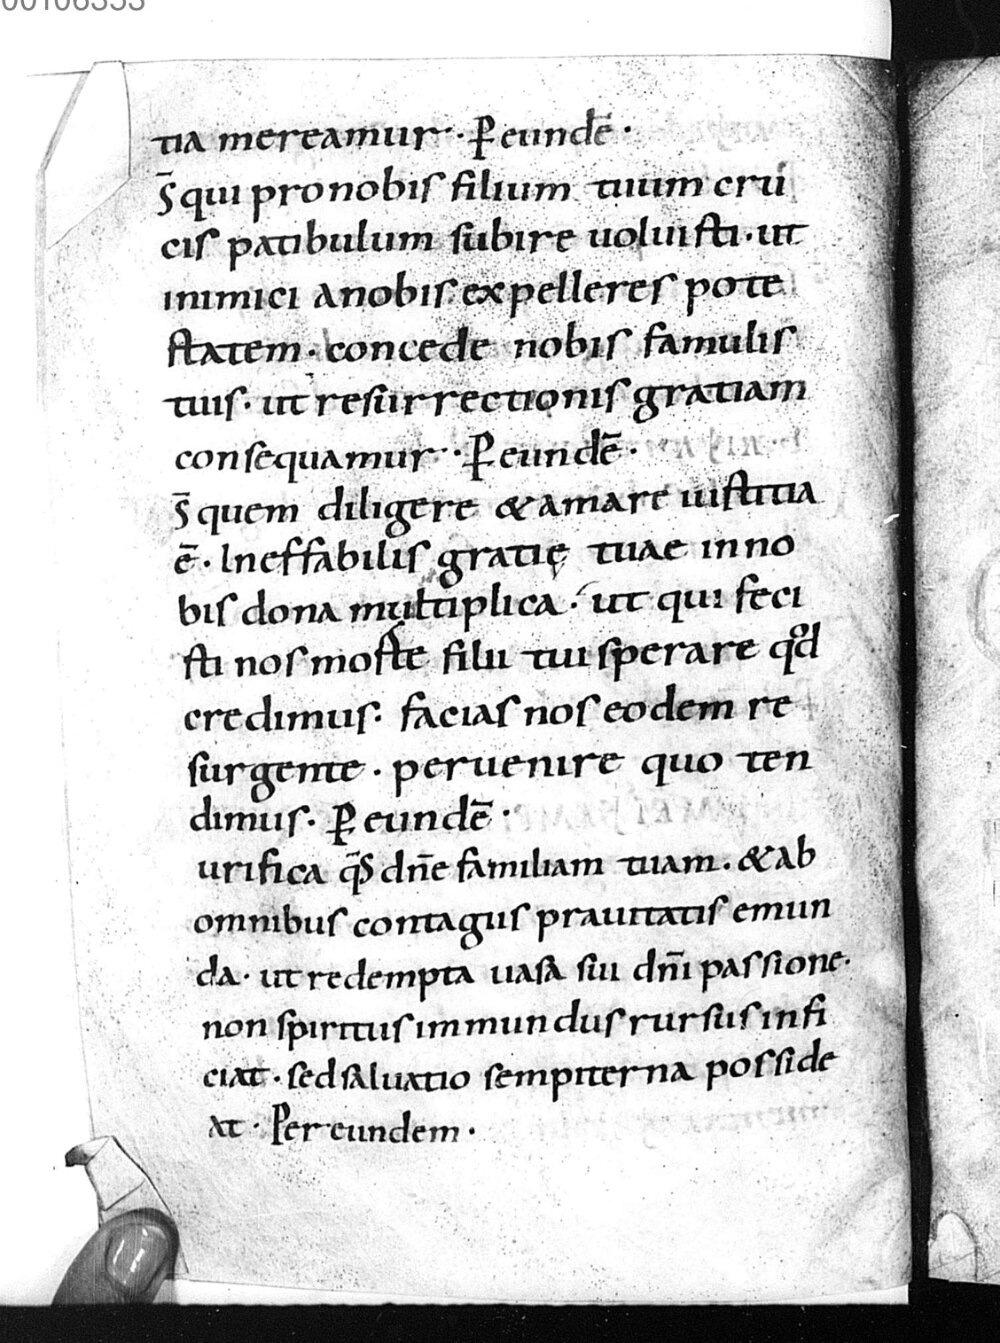 00106353
tia mereamur · P̲ eundē ·
S̄ qui pro nobis filium tuum cru
cis patibulum subire uoluisti · ut
inimici a nobis expelleres pote
statem · concede nobis famulis
tuis · ut resurrectionis gratiam
consequamur · P̲ eundē ·
S̄ quem diligere & amare iustitia
ē · Ineffabilis gratię tuae in no
bis dona multiplica · ut qui feci
sti nos morte filii tui sperare qđ
credimus · facias nos eodem re
surgente · peruenire quo ten
dimus · P̲ eundē ·
urifica q̄s dn̄e familiam tuam · & ab
omnibus contagiis prauitatis emun
da · ut redempta uasa sui dn̄i passione ·
non spiritus immundus rursus infi
ciat · sed saluatio sempiterna posside
at · Per eundem ·